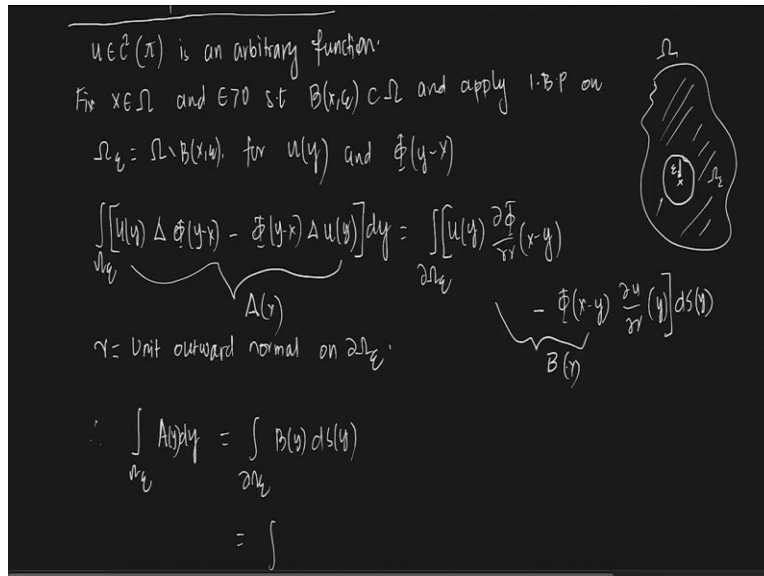 u ∈ C²(π) is an arbitrary function.
Fix x∈Ω and ε>0 s.t B(x,ε) ⊂ Ω and apply I.B.P on
Ω_ε = Ω∖B(x,ε). for u(y) and Φ(y-x)
∫_{Ω_ε} [u(y) Δ Φ(y-x) - Φ(y-x) Δ u(y)] dy = ∫_{∂Ω_ε} [u(y) ∂Φ/∂γ (x-y)
- Φ(x-y) ∂u/∂γ (y)] dS(y)
A(y)
B(y)
γ = Unit outward normal on ∂Ω_ε.
∴ ∫_{Ω_ε} A(y)dy = ∫_{∂Ω_ε} B(y) dS(y)
= ∫
Ω
Ω_ε
ε
x